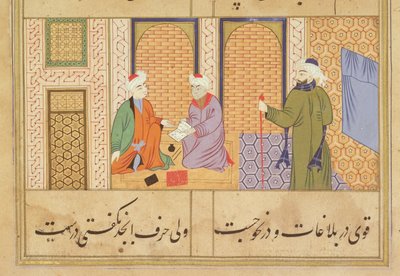 قوی در بلاغات و در نحو چست ولی حرف ابجد نگفتی درست